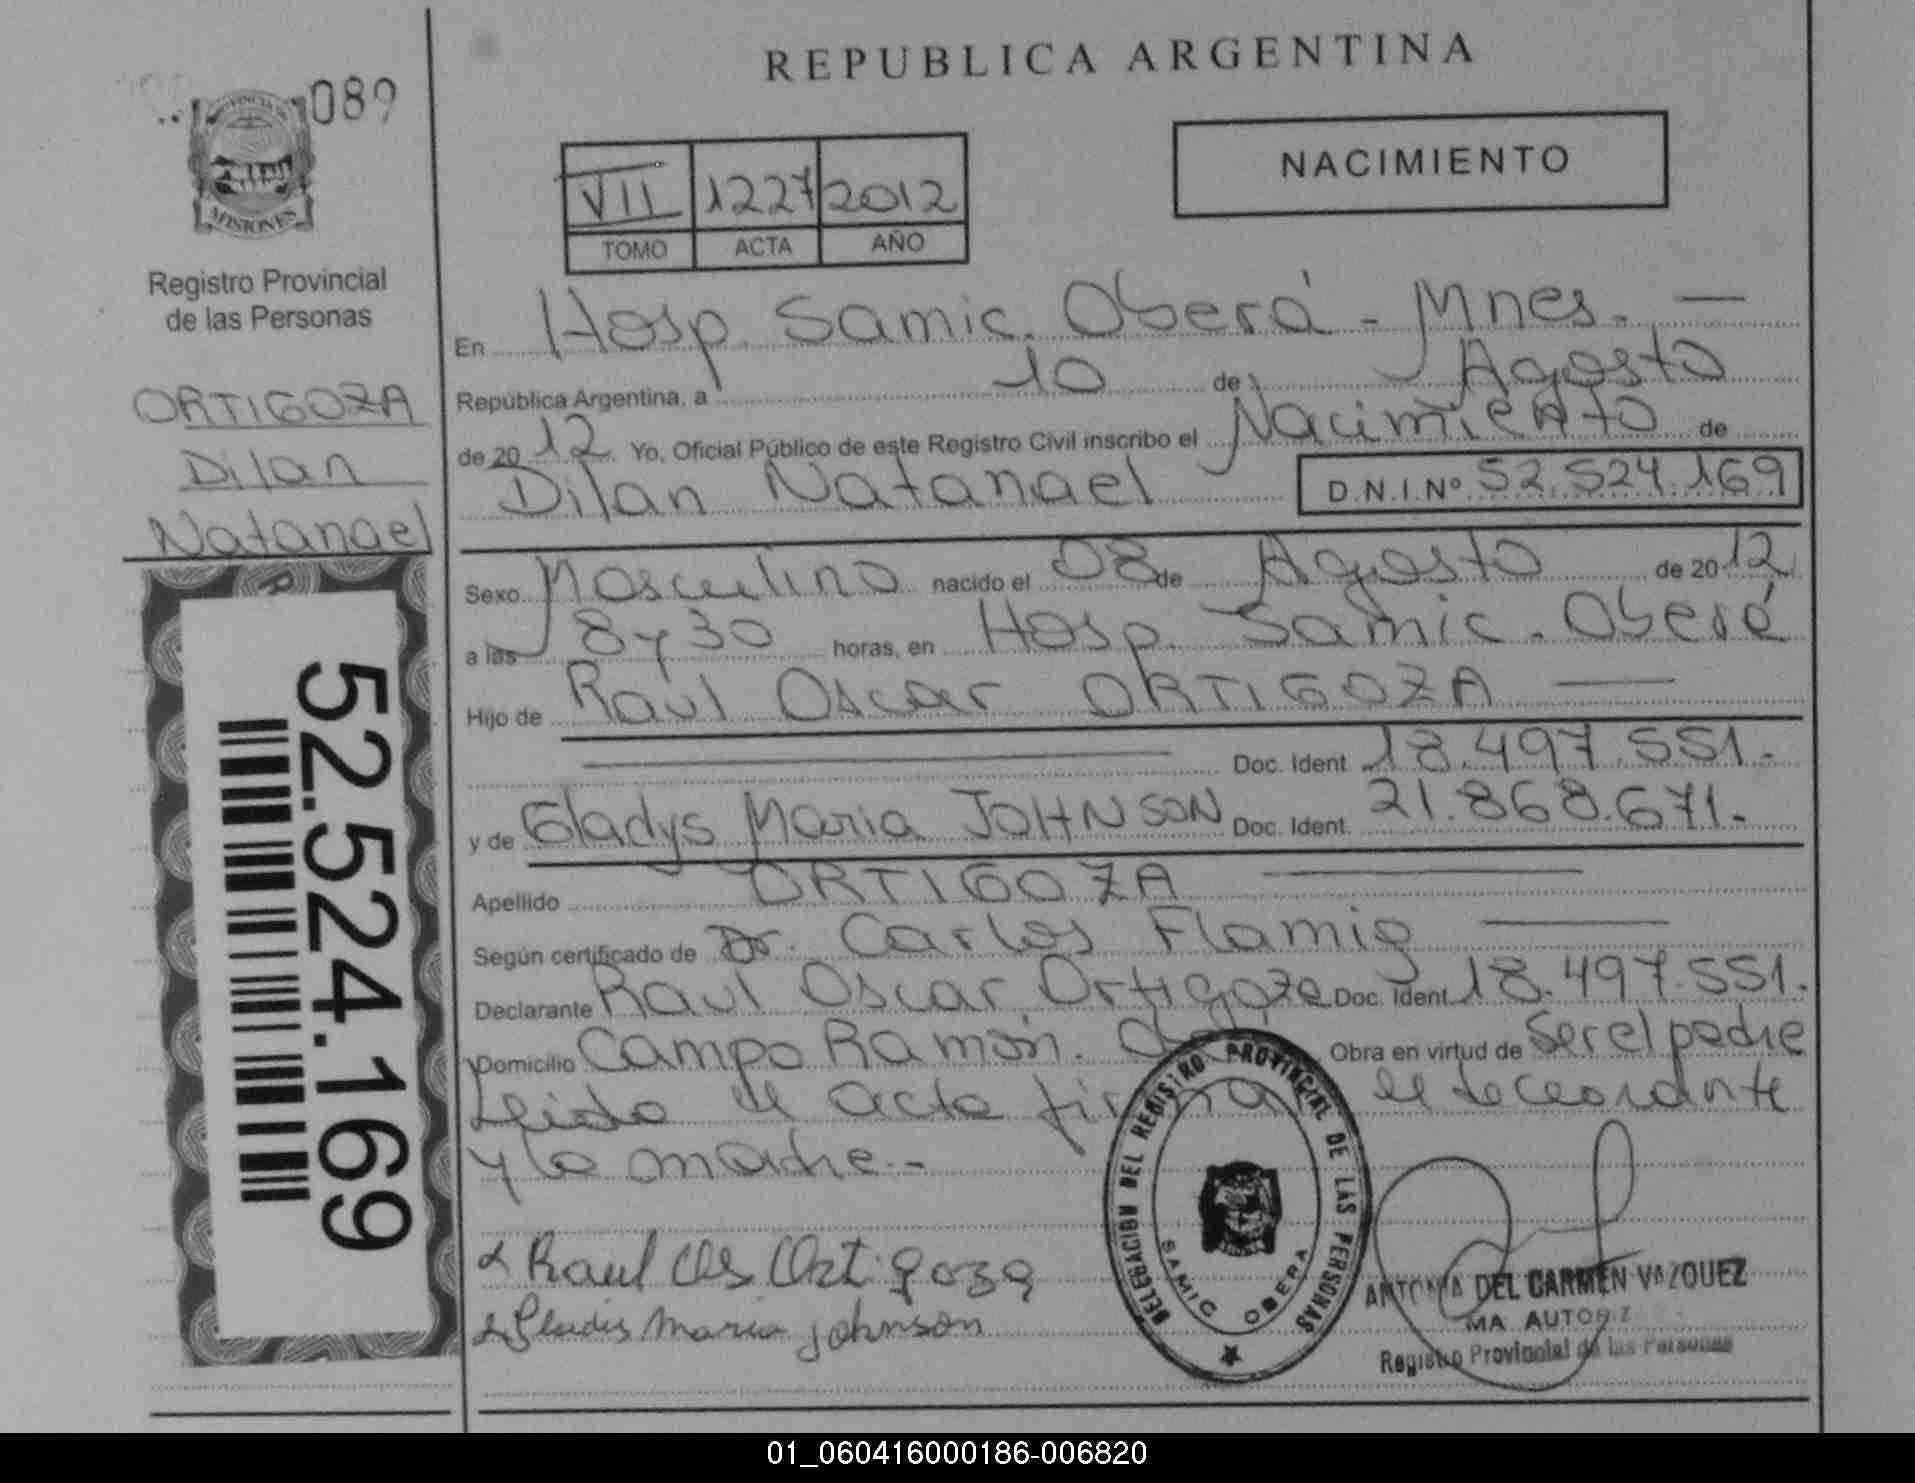 REPUBLICA ARGENTINA
089
PROVINCIA DE
MISIONES
NACIMIENTO
VII 1227 2012
TOMO ACTA AÑO
Registro Provincial
de las Personas
ORTIGOZA
Dilan
Natanael
52.524.169
En Hosp. Samic. Oberá - Mnes. —
República Argentina, a 10 de Agosto
de 2012 Yo, Oficial Público de este Registro Civil inscribo el Nacimiento de
Dilan Natanael D.N.I.Nº 52.524.169
Sexo Masculino nacido el 08 de Agosto de 2012
a las 8 y 30 horas, en Hosp. Samic. Oberá
Hijo de Raul Oscar ORTIGOZA —
Doc. Ident. 18.497.551.-
y de Gladys Maria JOHNSON Doc. Ident. 21.868.671.-
Apellido ORTIGOZA —
Según certificado de Dr. Carlos Flamig —
Declarante Raul Oscar Ortigoza Doc. Ident. 18.497.551.
Domicilio Campo Ramón. Obra en virtud de Ser el padre
Leida el acta el
y la madre.-
Raul Os Ortigoza
Gladis Maria Johnson
DELEGACION DEL REGISTRO PROVINCIAL DE LAS PERSONAS
SAMIC OBERA
ANTONIA DEL CARMEN VAZQUEZ
Registro Provincial de las Personas
01_060416000186-006820